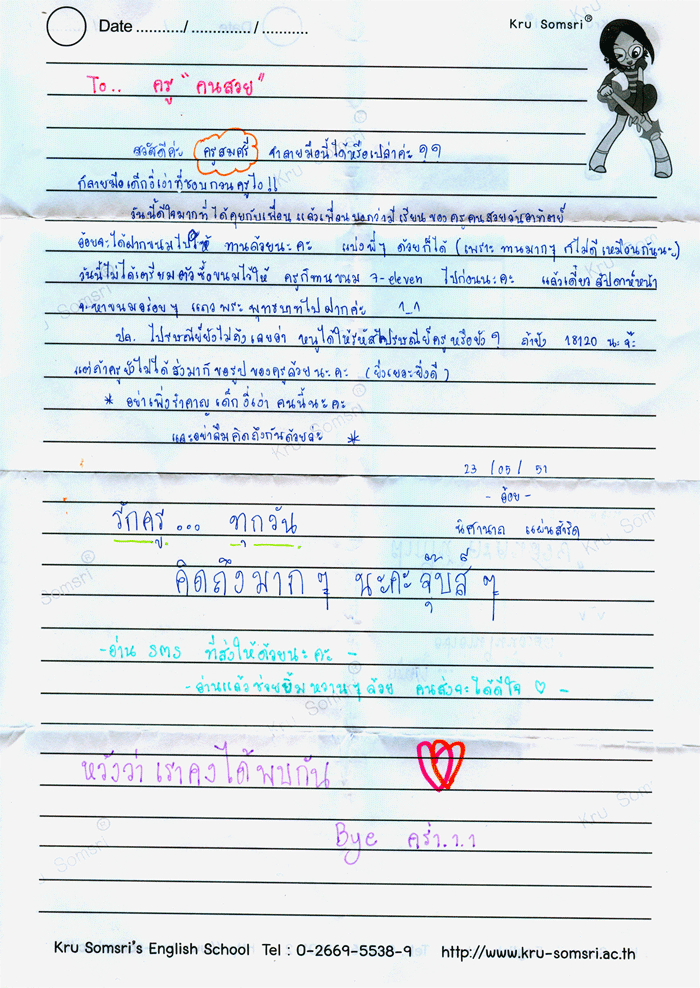 Date ........../ ............. / ...........
Kru Somsri®
To.. ครู "คนสวย"
สวัสดีค่ะ ครูสมศรี จำลายมือนี้ได้หรือเปล่าค่ะ ๆๆ
ก็ลายมือเด็กขี้เง่าที่ชอบกวนครูไง !!
วันนี้ดีใจมากที่ได้คุยกับเพื่อน แล้วเพื่อนบอกว่ามีเรียนของครูคนสวยวันอาทิตย์
อ้อยจะได้ฝากขนมไปให้ ทานด้วยนะคะ แบ่งพี่ๆ ด้วยก็ได้ (เพราะ ทานมากๆ ก็ไม่ดีเหมือนกันนะ)
วันนี้ไม่ได้เตรียมตัวซื้อขนมไว้ให้ ครูก็ทานขนม 7-eleven ไปก่อนนะคะ แล้วเดี๋ยว สัปดาห์หน้า
จะหาขนมอร่อยๆ แถว พระ พุทธบาทไปฝากค่ะ 1_1
ปล. ไปรษณีย์ยังไม่ถึงเลยอ่า หนูได้ให้รหัสไปรษณีย์ครูหรือยัง ๆ ถ้ายัง 18120 นะจ๊ะ
แต่ถ้าครูยังไม่ได้ส่งมาก็ ขอรูปของครูด้วยนะคะ (ยิ่งเยอะยิ่งดี)
* อย่าเพิ่งรำคาญเด็กขี้เง่า คนนี้นะคะ
และอย่าลืมคิดถึงกันด้วยล่ะ *
23 / 05 / 51
- อ้อย -
รักครู... ทุกวัน
นิศานาถ แผ่นสำริด
คิดถึงมากๆ นะคะจุ๊บส์ๆ
- อ่าน SMS ที่ส่งให้ด้วยนะคะ -
- อ่านแล้วช่วยยิ้มหวานๆด้วย คนส่งจะได้ดีใจ ♡ -
หวังว่าเราคงได้พบกัน
Bye คร่า.า.า
Kru Somsri's English School Tel : 0-2669-5538-9 http://www.kru-somsri.ac.th